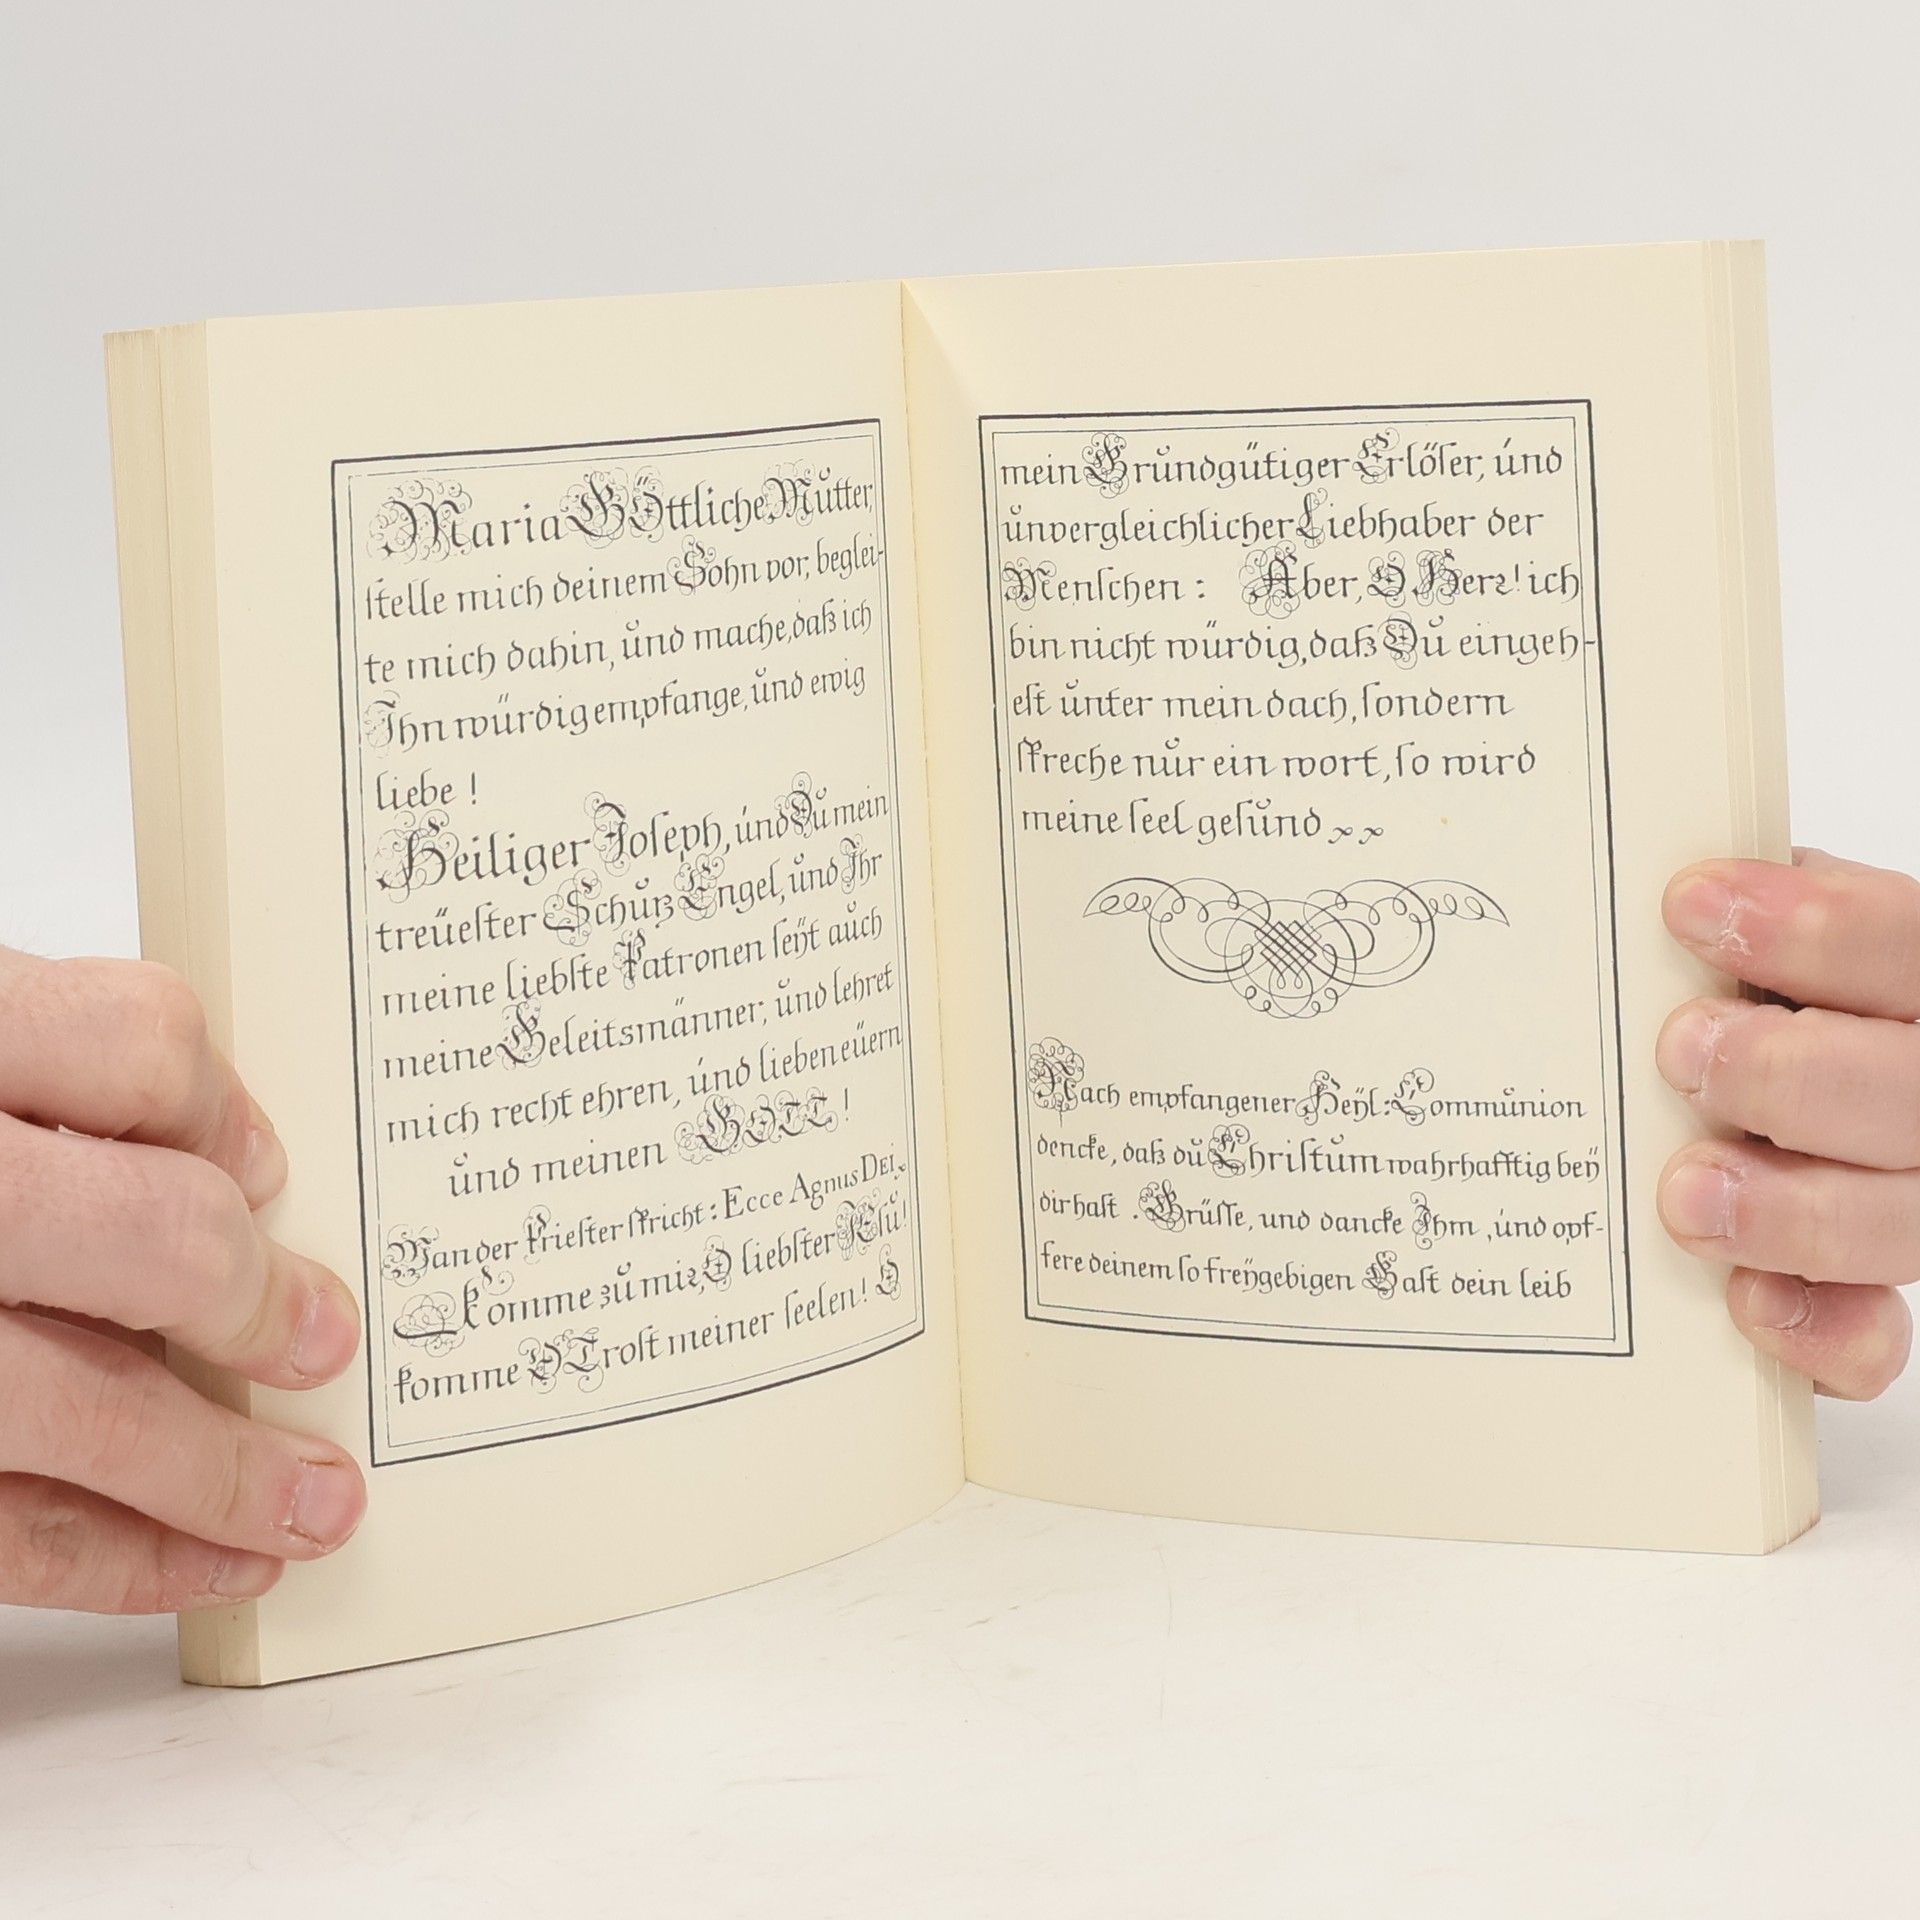 Maria GÖttliche Mŭtter,
ſtelle mich deinem Sohn vor, beglei-
te mich dahin, ŭnd mache, daß ich
Ihn würdig empfange, ŭnd ewig
liebe !
Heiliger Joſeph, ŭnd Dŭ mein
treüeſter Schŭtz Engel, ŭnd Ihr
meine liebſte Patronen ſeÿt aŭch
meine Geleitsmänner, ŭnd lehret
mich recht ehren, ŭnd lieben eüern
ŭnd meinen GOTT !
Wan der Prieſter ſpricht : Ecce Agnus DEI.
Komme zŭ mir, O liebſter JEſŭ!
komme O Troſt meiner ſeelen! O
mein Grŭndgütiger Erlöſer, ŭnd
ŭnvergleichlicher Liebhaber der
Menſchen : Aber, O Herr! ich
bin nicht würdig, daß Dŭ eingeh-
eſt ŭnter mein dach, ſondern
ſpreche nŭr ein wort, ſo wird
meine ſeel geſŭnd
Nach empfangener Heÿl: Commŭnion
dencke, daß dŭ Chriſtŭm wahrhafftig beÿ
dir haſt . Grüſſe, und dancke Ihm , ŭnd opf-
fere deinem ſo freÿgebigen Gaſt dein leib